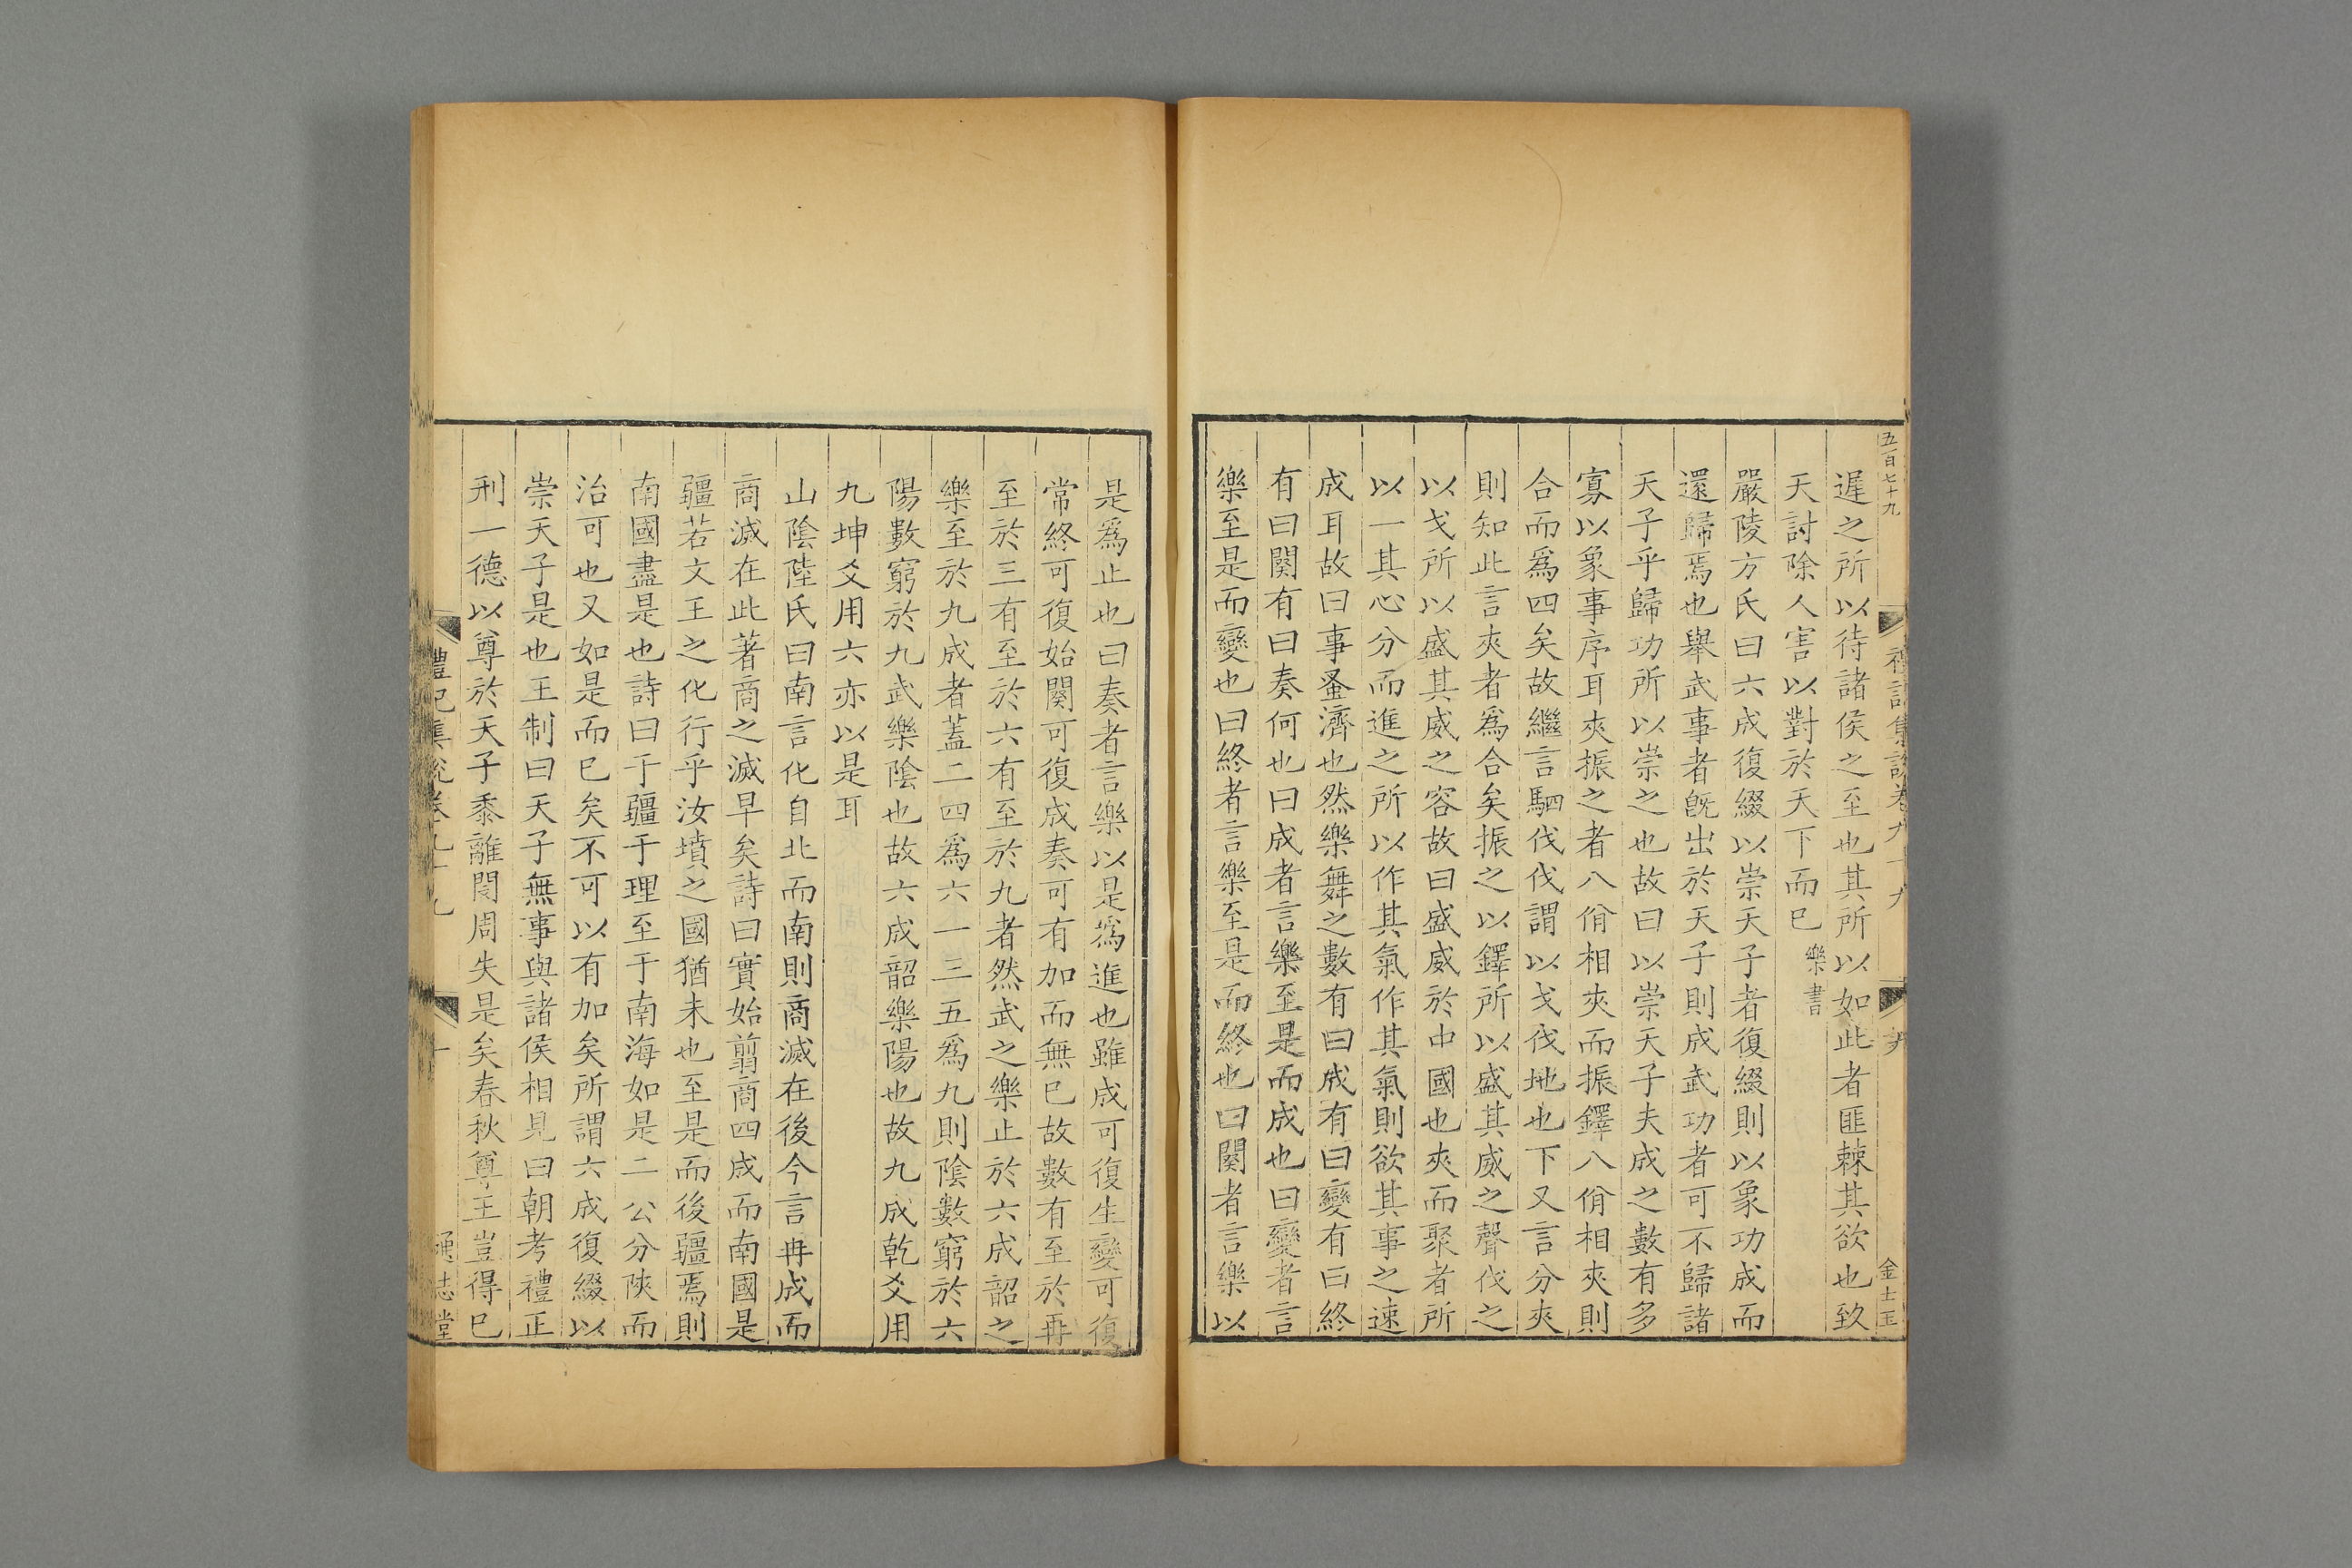 五百七十九
禮記集說卷九十九
金士玉
遲之所以待諸侯之至也其所以如此者匪棘其欲也致
天討除人害以對於天下而已樂書
嚴陵方氏曰六成復綴以崇天子者復綴則以象功成而
還歸焉也舉武事者旣出於天子則成武功者可不歸諸
天子乎歸功所以崇之也故曰以崇天子夫成之數有多
寡以象事序耳夾振之者八佾相夾而振鐸八佾相夾則
合而爲四矣故繼言駟伐伐謂以戈伐地也下又言分夾
則知此言夾者爲合矣振之以鐸所以盛其威之聲伐之
以戈所以盛其威之容故曰盛威於中國也夾而聚者所
以一其心分而進之所以作其氣作其氣則欲其事之速
成耳故曰事蚤濟也然樂舞之數有曰成有曰變有曰終
有曰闋有曰奏何也曰成者言樂至是而成也曰變者言
樂至是而變也曰終者言樂至是而終也曰闋者言樂以
是爲止也曰奏者言樂以是爲進也雖成可復生變可復
常終可復始闋可復成奏可有加而無已故數有至於再
至於三有至於六有至於九者然武之樂止於六成韶之
樂至於九成者蓋二四爲六一三五爲九則陰數窮於六
陽數窮於九武樂陰也故六成韶樂陽也故九成乾爻用
九坤爻用六亦以是耳
山陰陸氏曰南言化自北而南則商滅在後今言再成而
商滅在此著商之滅早矣詩曰實始翦商四成而南國是
疆若文王之化行乎汝墳之國猶未也至是而後疆焉則
南國盡是也詩曰于疆于理至于南海如是二公分陝而
治可也又如是而已矣不可以有加矣所謂六成復綴以
崇天子是也王制曰天子無事與諸侯相見曰朝考禮正
刑一德以尊於天子黍離閔周失是矣春秋尊王豈得已
禮記集說卷九十九
通志堂